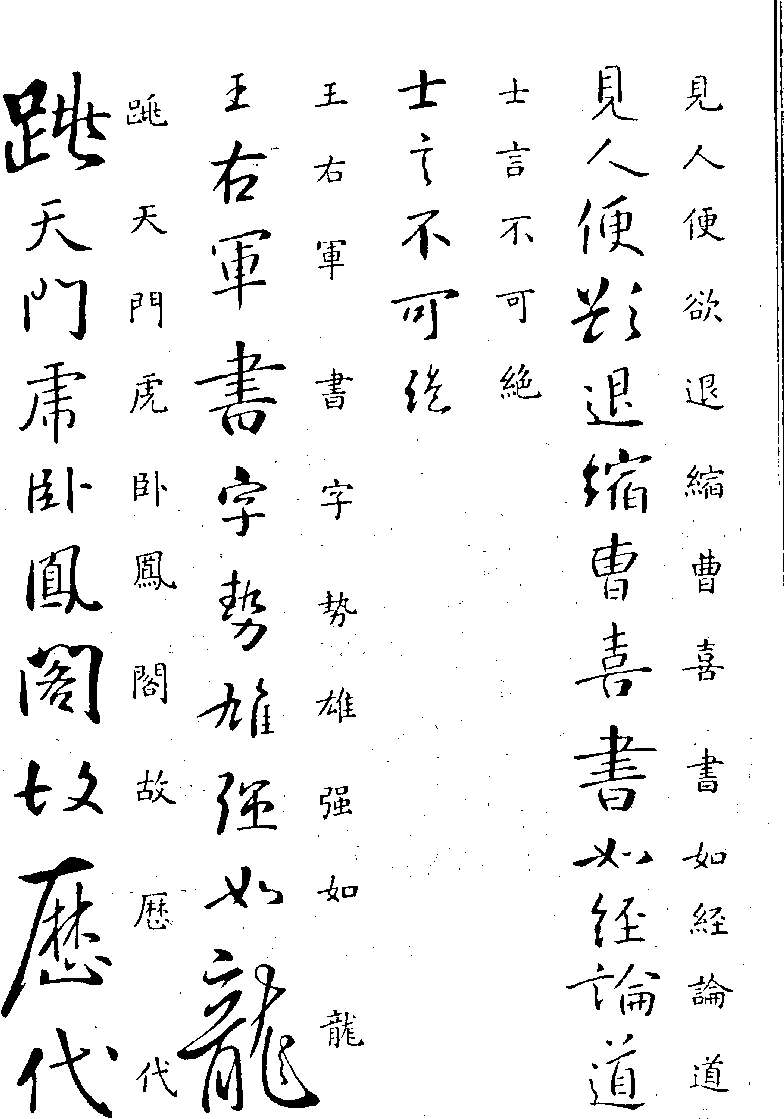 見人便欲退縮曹喜書如経論道
見人便欲退縮曹喜書如経論道
士言不可絶
士言不可絶
王右軍書字势雄强如龍
王右軍書字势雄强如龍
跳天門虎卧鳳閣故歴代
跳天門虎卧鳳閣故歴代